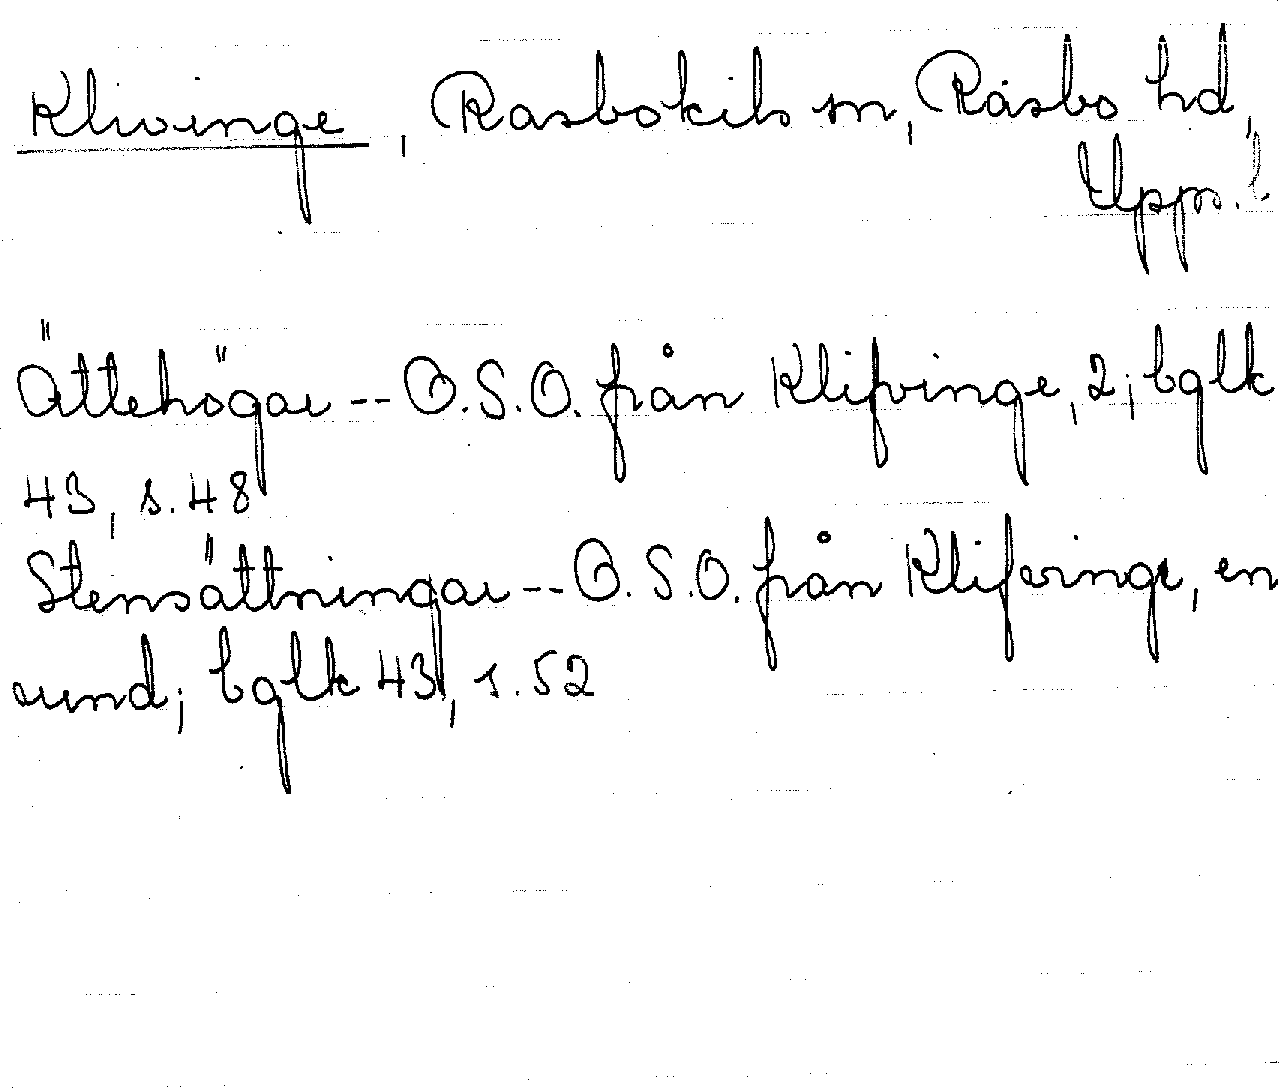 Klivinge, Rasbokils sn, Rasbo hd,
Upps. l.
Ättehögar -- O.S.O. från Klifvinge, 2; bglk
43, s. 48
Stensättningar -- O.S.O. från Klifvinge, en
rund; bglk 43, s. 52